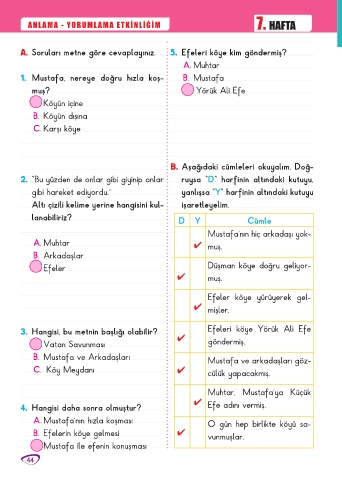 ANLAMA - YORUMLAMA ETKİNLİĞİM
7. HAFTA
A. Soruları metne göre cevaplayınız.
1. Mustafa, nereye doğru hızla koş-
muş?
Köyün içine
B. Köyün dışına
C. Karşı köye
2. "Bu yüzden de onlar gibi giyinip onlar
gibi hareket ediyordu."
Altı çizili kelime yerine hangisini kul-
lanabiliriz?
A. Muhtar
B. Arkadaşlar
Efeler
3. Hangisi, bu metnin başlığı olabilir?
Vatan Savunması
B. Mustafa ve Arkadaşları
C. Köy Meydanı
4. Hangisi daha sonra olmuştur?
A. Mustafa'nın hızla koşması
B. Efelerin köye gelmesi
Mustafa ile efenin konuşması
44
5. Efeleri köye kim göndermiş?
A. Muhtar
B. Mustafa
Yörük Ali Efe
B. Aşağıdaki cümleleri okuyalım. Doğ-
ruysa "D" harfinin altındaki kutuyu,
yanlışsa "Y" harfinin altındaki kutuyu
işaretleyelim.
D Y Cümle
Mustafa'nın hiç arkadaşı yok-
muş.
Düşman köye doğru geliyor-
muş.
Efeler köye yürüyerek gel-
mişler.
Efeleri köye Yörük Ali Efe
göndermiş.
Mustafa ve arkadaşları göz-
cülük yapacakmış.
Muhtar, Mustafa'ya Küçük
Efe adını vermiş.
O gün hep birlikte köyü sa-
vunmuşlar.